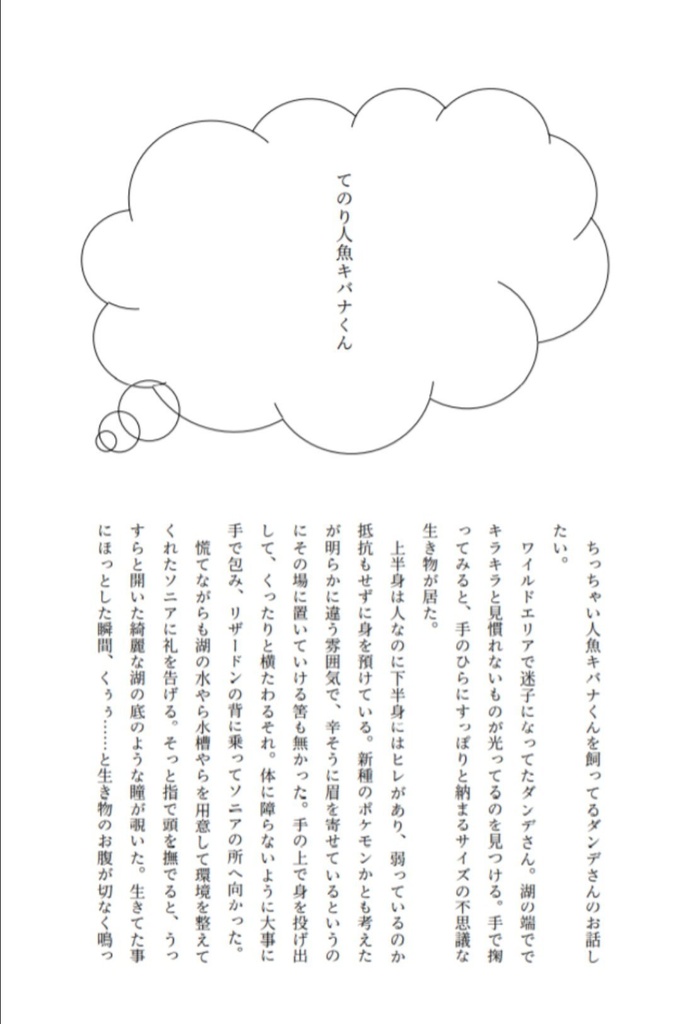 てのり人魚キバナくん
ちっちゃい人魚キバナくんを飼ってるダンデさんのお話し
たい。
ワイルドエリアで迷子になってたダンデさん。湖の端でで
キラキラと見慣れないものが光ってるのを見つける。手で掬
ってみると、手のひらにすっぽりと納まるサイズの不思議な
生き物が居た。
上半身は人なのに下半身にはヒレがあり、弱っているのか
抵抗もせずに身を預けている。新種のポケモンかとも考えた
が明らかに違う雰囲気で、辛そうに眉を寄せているというの
にその場に置いていける筈も無かった。手の上で身を投げ出
して、くったりと横たわるそれ。体に障らないように大事に
手で包み、リザードンの背に乗ってソニアの所へ向かった。
慌てながらも湖の水やら水槽やらを用意して環境を整えて
くれたソニアに礼を告げる。そっと指で頭を撫でると、うっ
すらと開いた綺麗な湖の底のような瞳が覗いた。生きてた事
にほっとした瞬間、くぅぅ……と生き物のお腹が切なく鳴っ